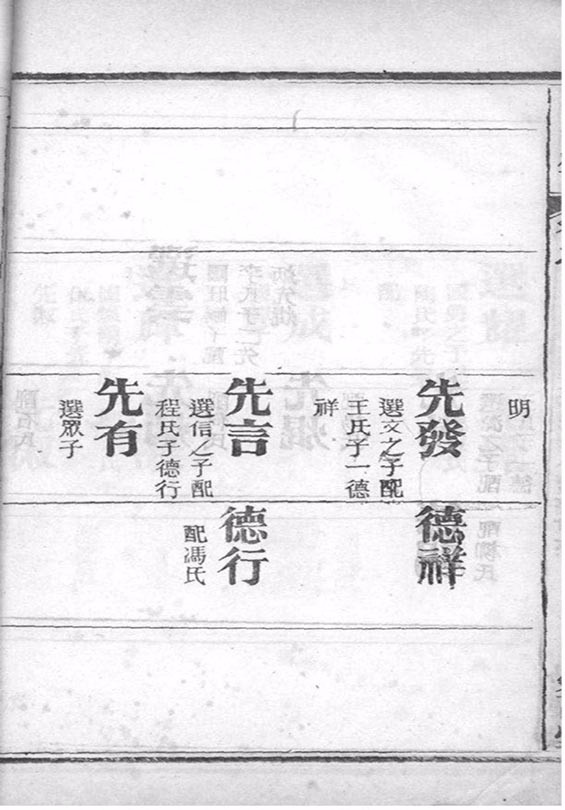 明
先發
選文之子配
王氏子一德
祥
德祥
先言
選信之子配
程氏子德行
德行
配馮氏
先有
選眾子